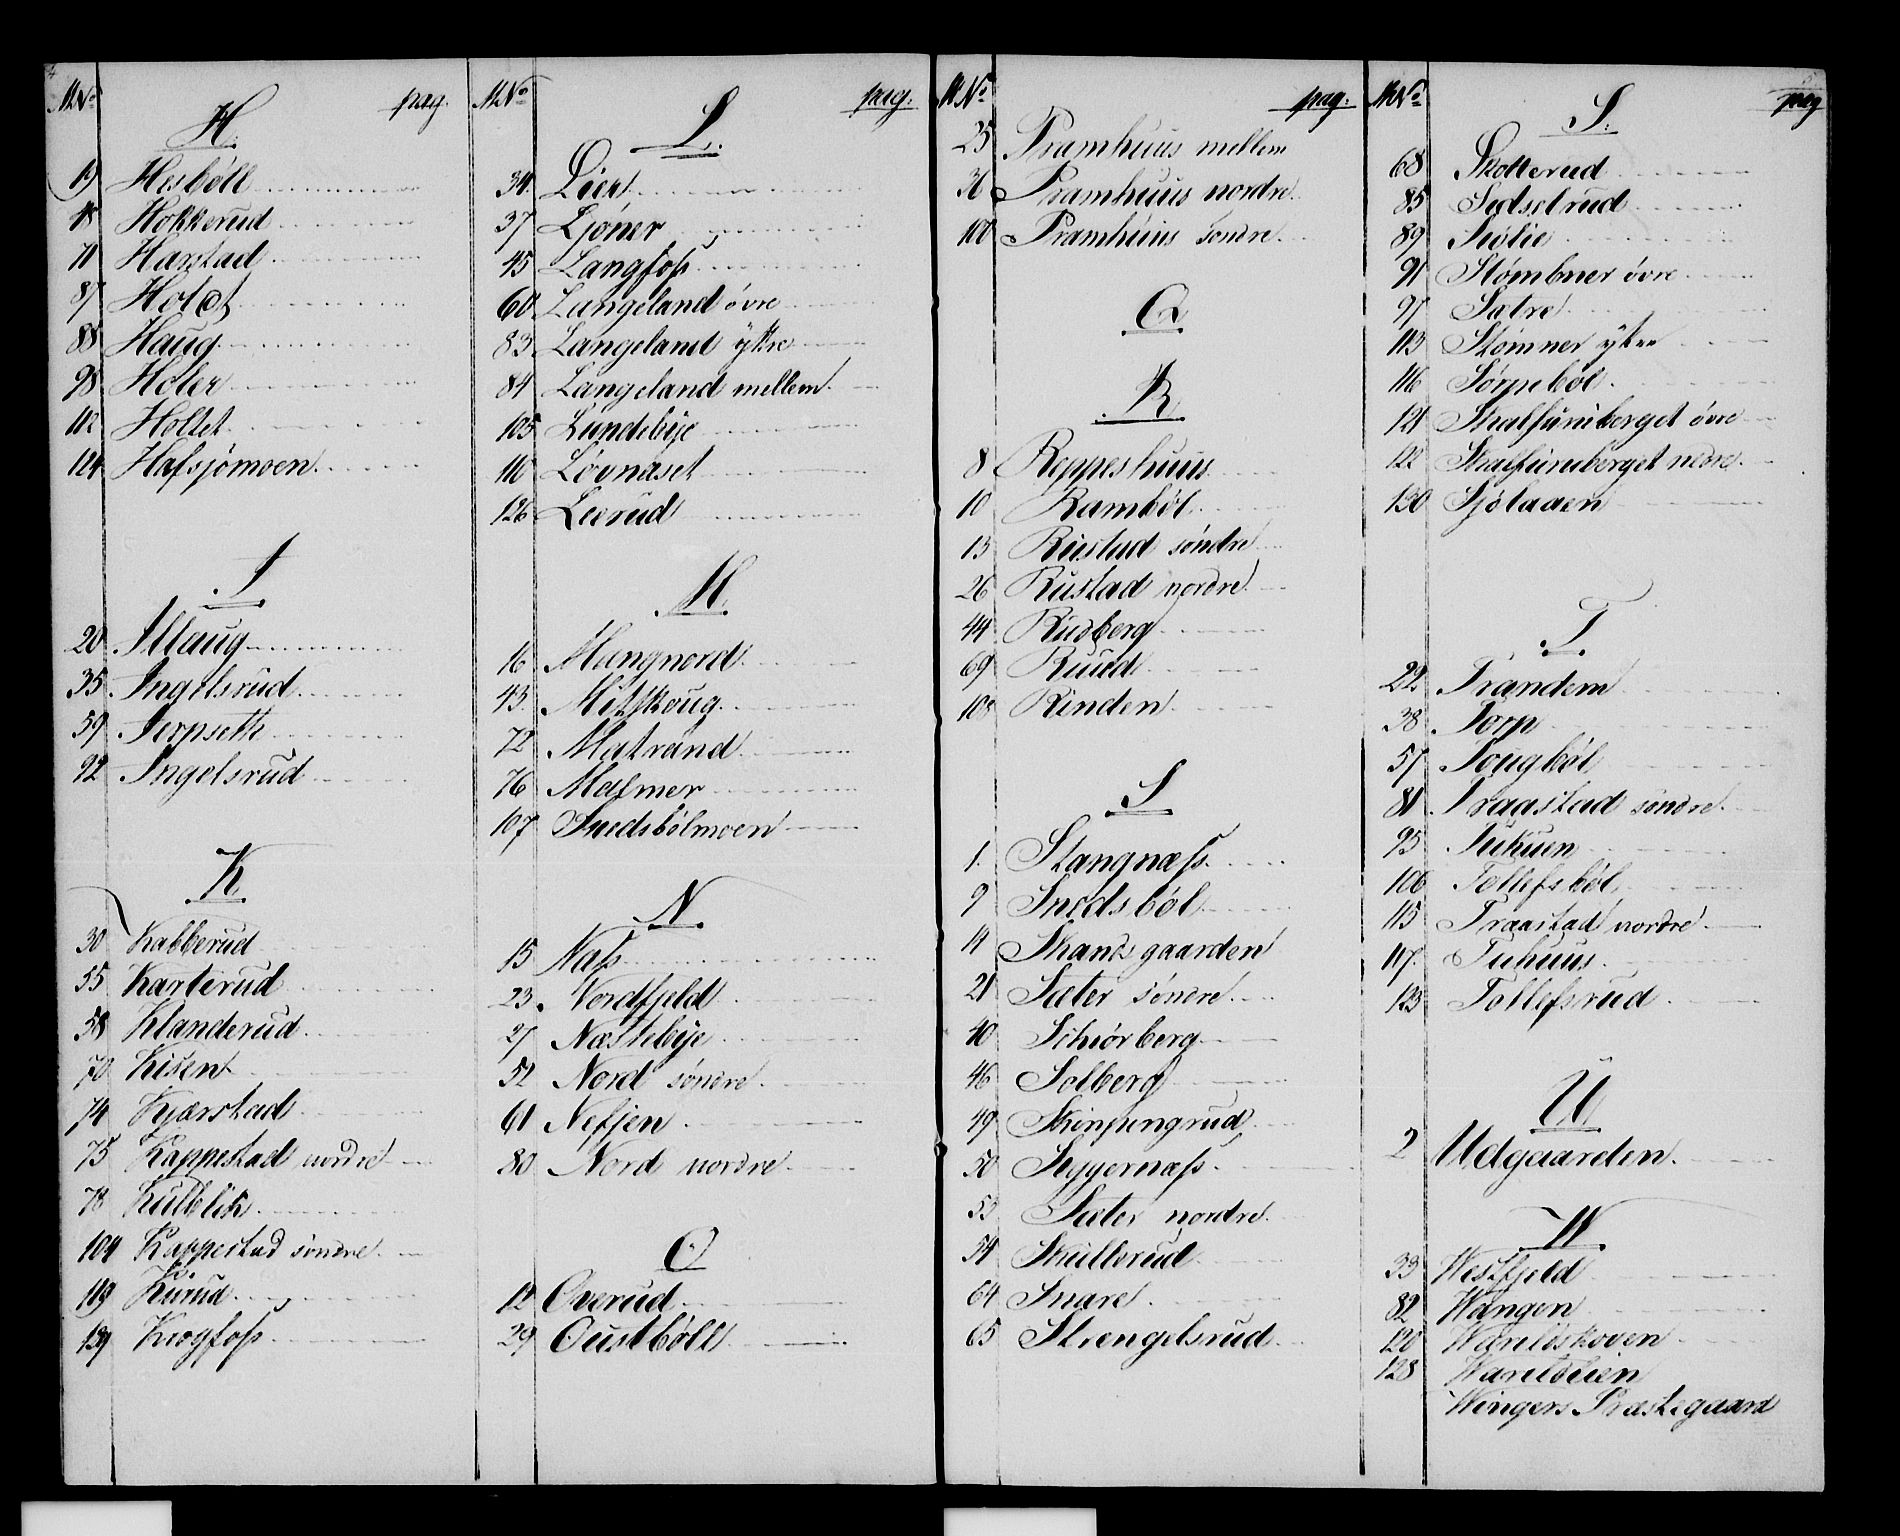 M.No pag.
H.
19 Hesböll
18 Hokkerud
71 Harstad
87 Holdt
88 Haug
98 Holer
112 Holtet
124 Hafsjömoen
I
20 Illaug
35 Ingelsrud
59 Ierpseth
92 Ingelsrud
K
30 Kabberud
55 Karterud
58 Klanderud
70 Kisen
74 Kjærstad
75 Kappestad nordre
78 Kulblik
104 Kappestad söndre
Kurud
Krogfoss
M.No pag.
L.
34 Lier
37 Ljöner
45 Langfoss
60 Langeland övre
83 Langeland ytre
84 Langeland mellem
105 Lundebye
110 Lövnæset
126 Leerud
M.
16 Mangnord
43 Mitskoug
72 Matrand
76 Malmer
107 Snedsbölmoen
N
15 Næss
23 Nordfjeld
27 Næstebye
52 Nord söndre
61 Nefjen
80 Nord nordre
O
12 Overud
29 Oustböll
M.No pag.
25 Pramhuus mellem
36 Pramhuus nordre
100 Pramhuus söndre
Q
R
8 Reppeshuus
10 Ramböl
13 Rustad söndre
26 Rustad nordre
44 Rudberg
69 Ruud
108 Rinden
S
1 Stangnæss
9 Snedsböl
14 Skandsgaarden
21 Sæter söndre
40 Schiörberg
46 Solberg
49 Skinpungrud
50 Siggernæss
53 Sæter nordre
54 Skullerud
64 Snare
65 Strengelsrud
M.No pag
S.
68 Skotterud
85 Sedsetrud
89 Siölie
91 Stömbner övre
97 Sætre
113 Stömner ytre
116 Sörpeböl
121 Skalfuruberget övre
122 Skalfuruberget nedre
130 Sjölaaen
T.
22 Trandem
38 Torp
57 Tougböl
81 Traastad söndre
95 Tukuen
106 Tollefsböl
115 Traastad nordre
117 Tuhuus
123 Tollefsrud
U
2 Udgaarden
W
33 Westfjeld
82 Wangen
120 Warildskoven
128 Warildlien
Wingers Præstegaard